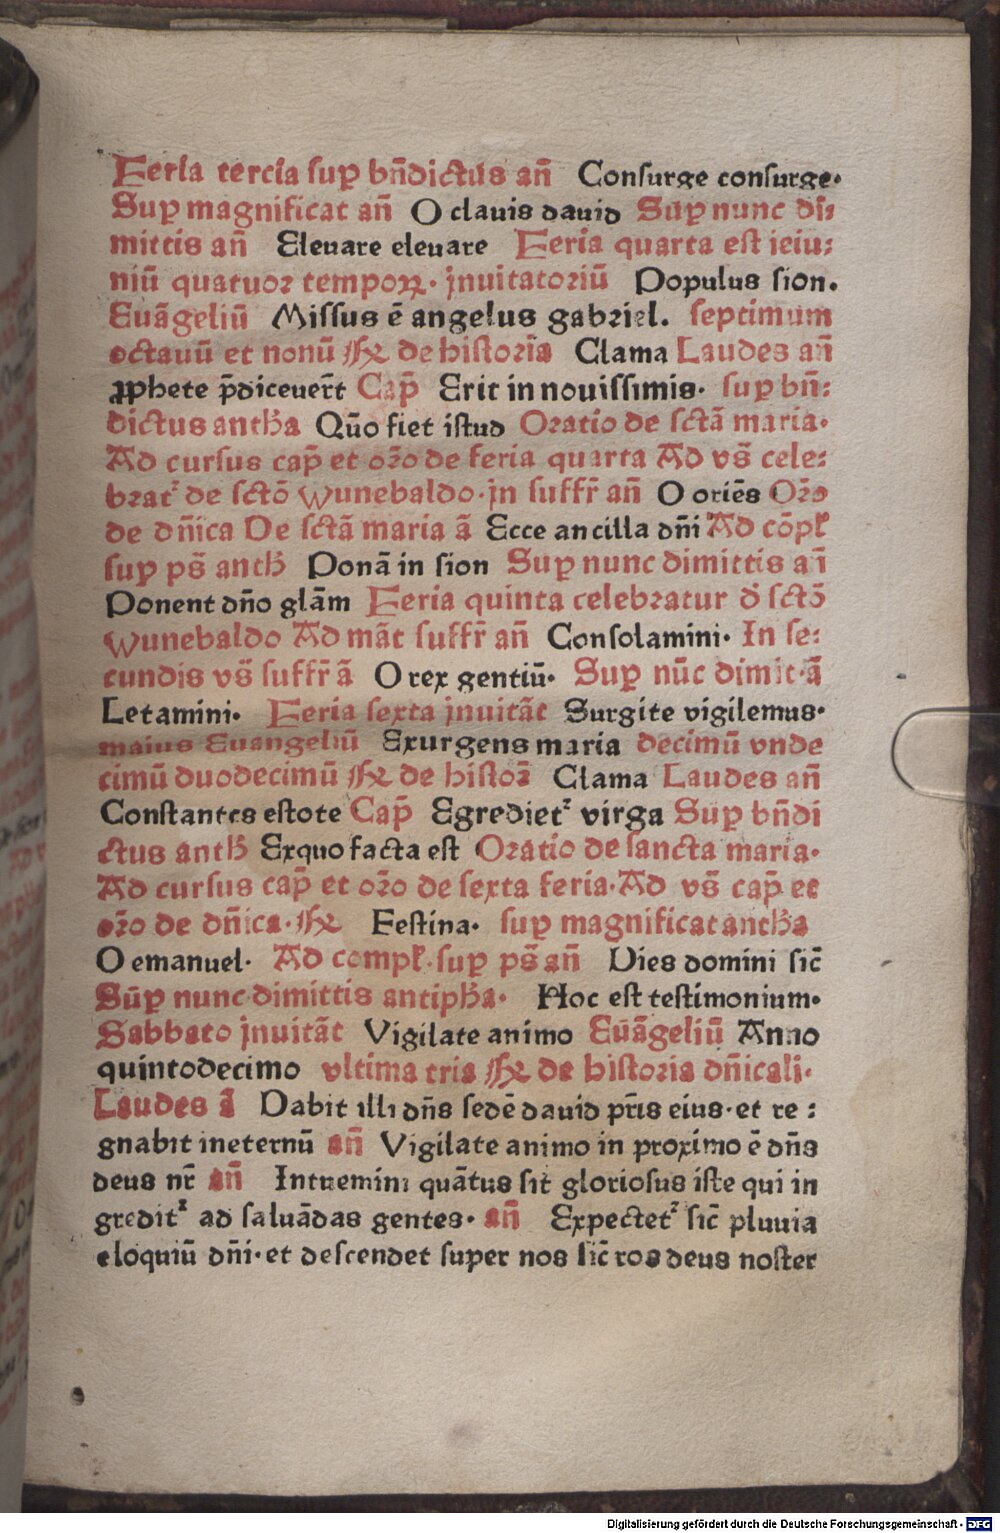 Feria tercia suꝑ bn̄dictus an̄ Consurge consurge.
Suꝑ magnificat an̄ O clauis dauid Suꝑ nunc di:
mittis an̄ Eleuare eleuare Feria quarta est ieiu:
niū quatuor tempoꝝ. Jnuitatoriū Populus sion.
Euāgeliū Missus ē angelus gabriel. septimum
octauū et nonū ℟ de historia Clama Laudes an̄
ꝓphete p̄dicauer̄t Cap̄ Erit in nouissimis. suꝑ bn̄:
dictus antħa Qūo fiet istud Oratio de sctā maria.
Ad cursus cap̄ et or̄o de feria quarta Ad vs̄ cele:
brat᷑ de sctō wunebaldo. Jn suffr̄ an̄ O oriēs Or̄o
de dn̄ica De sctā maria ā Ecce ancilla dn̄i Ad cōpƚ
suꝑ ps̄ antħ Ponā in sion Suꝑ nunc dimittis an̄
Ponent dn̄o glām Feria quinta celebratur d̄ sctō
wunebaldo Ad māt suffr̄ an̄ Consolamini. In se:
cundis vs̄ suffr̄ ā O rex gentiū. Suꝑ nūc dimit. ā
Letamini. Feria sexta Jnuitāt Surgite vigilemus.
maius Euangeliū Exurgens maria decimū vnde
cimū duodecimū ℟ de histor̄ Clama Laudes an̄
Constantes estote Cap̄ Egrediet᷑ virga Suꝑ bn̄di
ctus antħ Exquo facta est Oratio de sancta maria.
Ad cursus cap̄ et or̄o de sexta feria. Ad vs̄ cap̄ et
or̄o de dn̄ica. ℟ Festina. suꝑ magnificat antħa
O emanuel. Ad compƚ. suꝑ ps̄ an̄ Dies domini sic̄
Suꝑ nunc dimittis antipħa. Hoc est testimonium.
Sabbato Jnuitāt Vigilate animo Euāgeliū Anno
quintodecimo vltima tria ℟ de historia dn̄icali.
Laudes ā Dabit illi dn̄s sedē dauid pr̄is eius. et re:
gnabit ineternū an̄ Vigilate animo in proximo ē dn̄s
deus nr̄ an̄ Intuemini quātus sit gloriosus iste qui in
gredit᷑ ad saluādas gentes. an̄ Expectet᷑ sic̄ pluuia
eloquiū dn̄i. et descendet super nos sic̄ ros deus noster
Digitalisierung gefördert durch die Deutsche Forschungsgemeinschaft - DFG